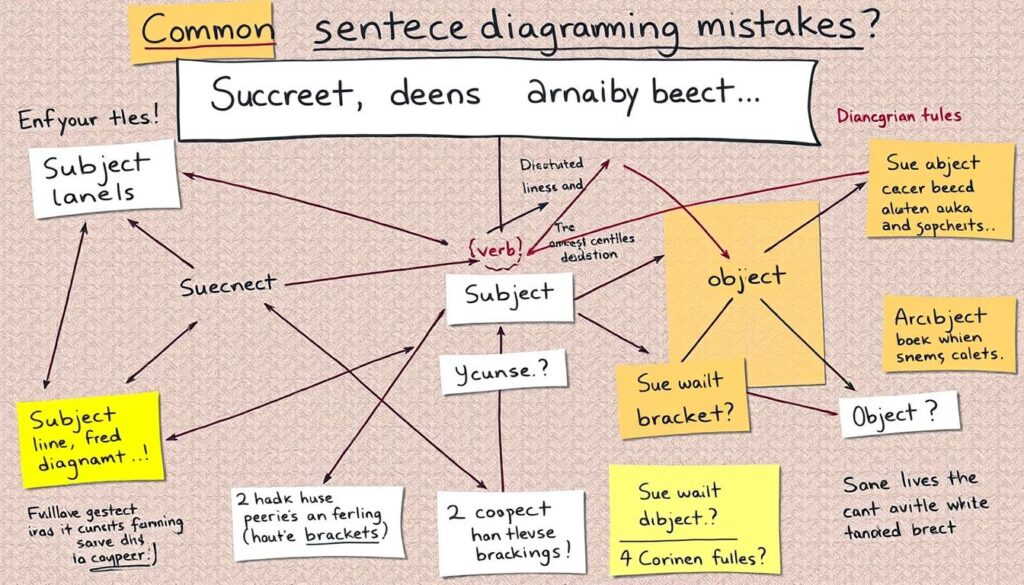 Common sentece diagramming mistakes?
Succreet, deens arnaiby beect...
Enfyour tles!
Diancgrian tules
Subject
lanels
Dieututed
liness and
Tre
centlles
dedstion
{verb!
Subject
Suecnect
Ycunse.?
object
Sue abject
cacer beecd
aluten auka
and gopcheits..
Arcibject
boek whien
snems, calets.
Sue wailt
bracket?
Object?
Subject
line, fred
diagnamt..!
Fullave gestect
it cunsts
save
2 hadk huse
peerie's an ferling
(houtie brackets)
2 coopect
han tleuse
brackings!
Sue wailt
dibject.?
4 Corinen fulles?
Sane lives the
cant avitle white
tanored brect